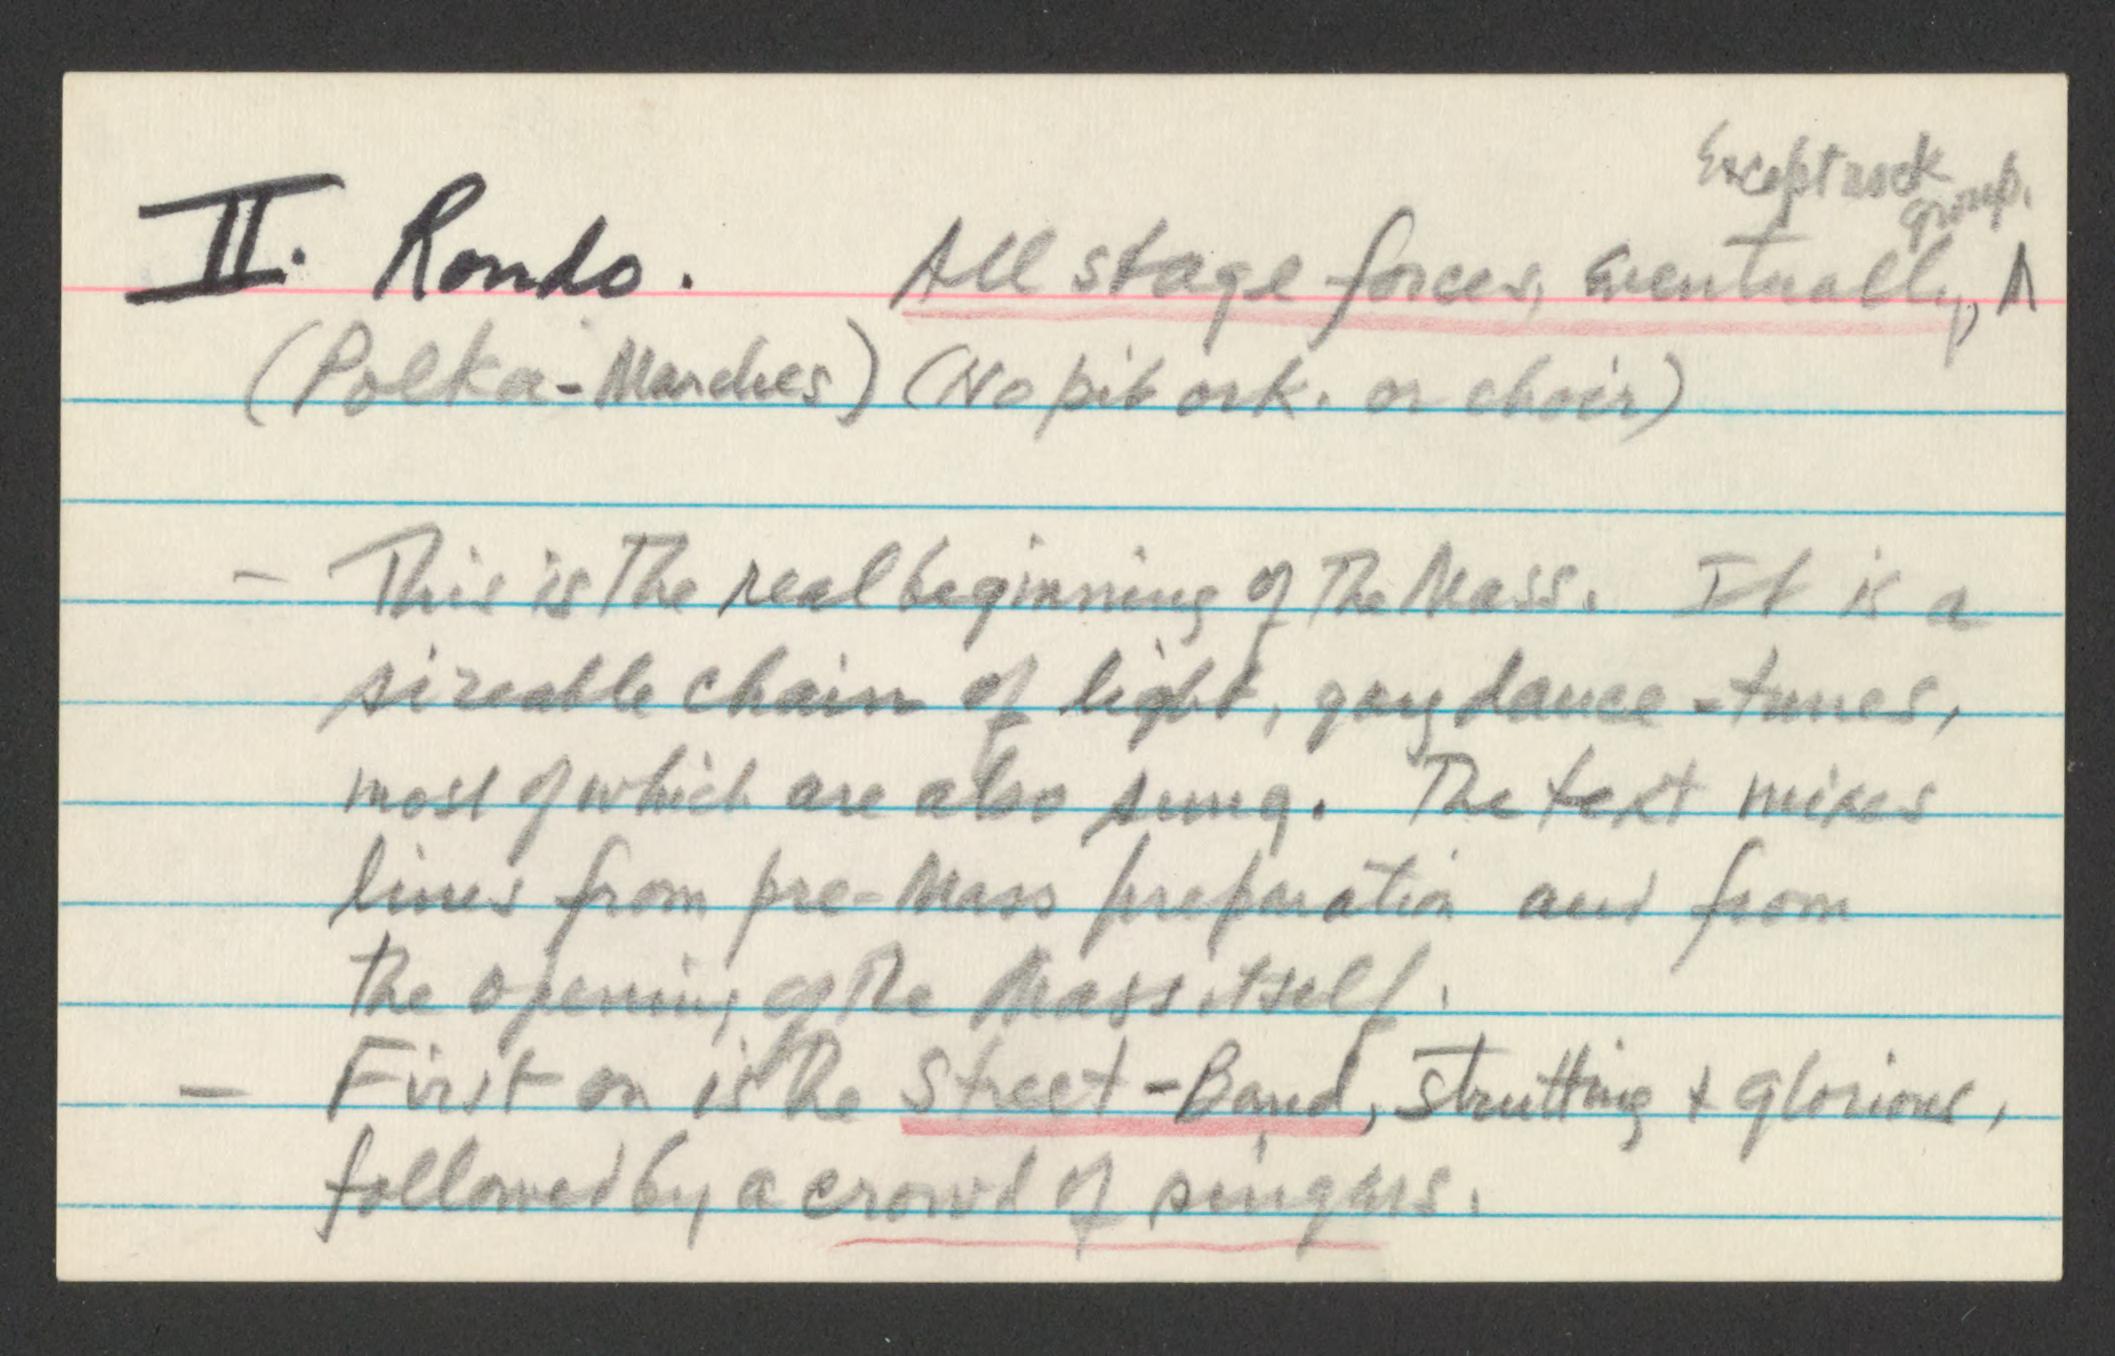 Except rock
group.
II. Rondo. All stage forces, eventually, ^
(Polka-Marches) (No pit ork. or choir)
- This is the real beginning of the Mass. It is a
sizeable chain of light, gay dance-tunes,
most of which are also sung. The text mixes
lines from pre-Mass preparation and from
the opening of the Mass itself.
- First on is the Street-Band, strutting + glorious,
followed by a crowd of singers.